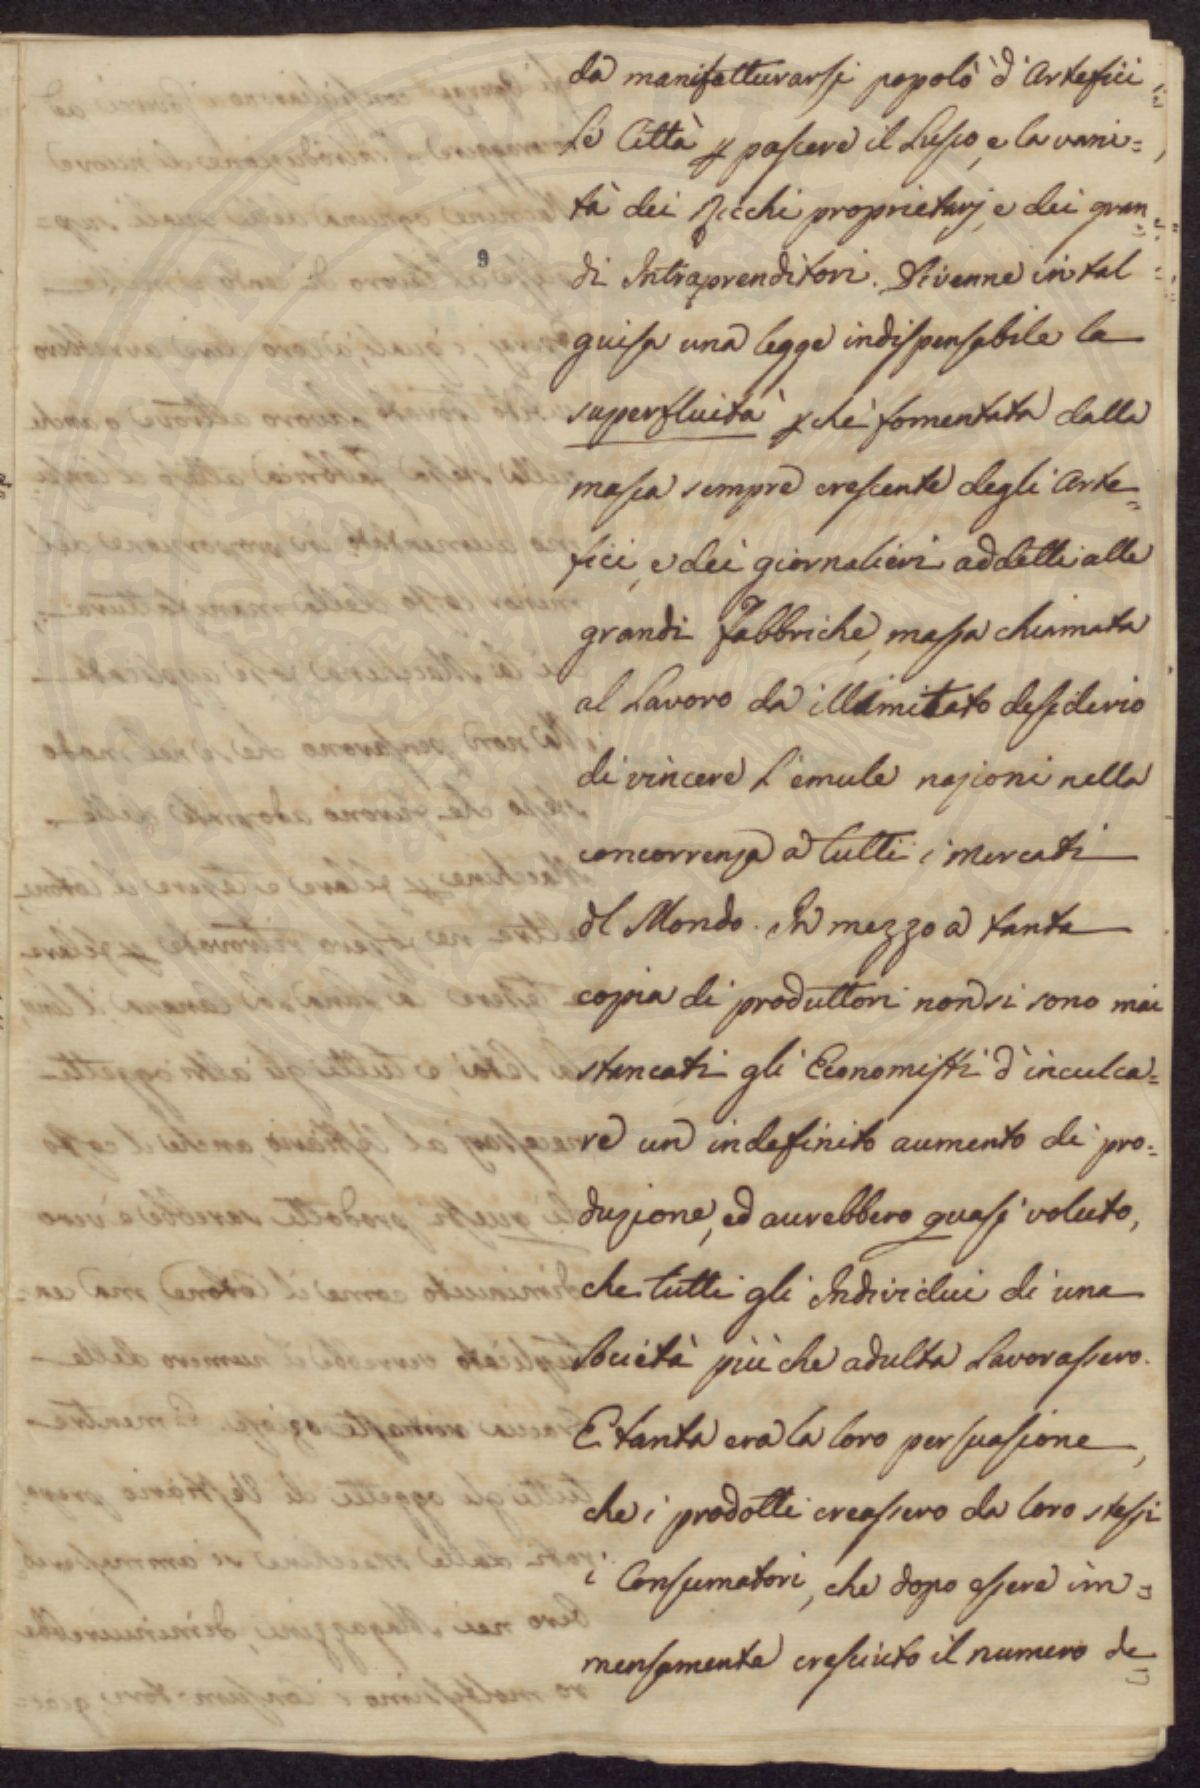 da manifatturarsi popolò d'Artefici
le Città p pascere il Lusso, e la vani=
tà dei Ricchi proprietarj, e dei gran
di Intraprenditori. Divenne in tal
9
guisa una legge indispensabile la
superfluità pchè fomentata dalla
massa sempre crescente degli Arte=
fici, e dei giornalieri addetti alle
grandi Fabbriche, massa chiamata
al Lavoro da illimitato desiderio
di vincere l'emule nazioni nella
concorrenza a tutti i Mercati
dl Mondo. In mezzo a tanta
copia di produttori non si sono mai
stancati gli Economisti d'inculca=
re un indefinito aumento di pro=
duzione, ed aurebbero quasi voluto,
che tutti gli Individui di una
Società più che adulta Lavorassero.
E tanta era la loro persuasione,
che i prodotti creassero da loro stessi
i Consumatori, che dopo essere im=
mensamente cresciuto il numero de=